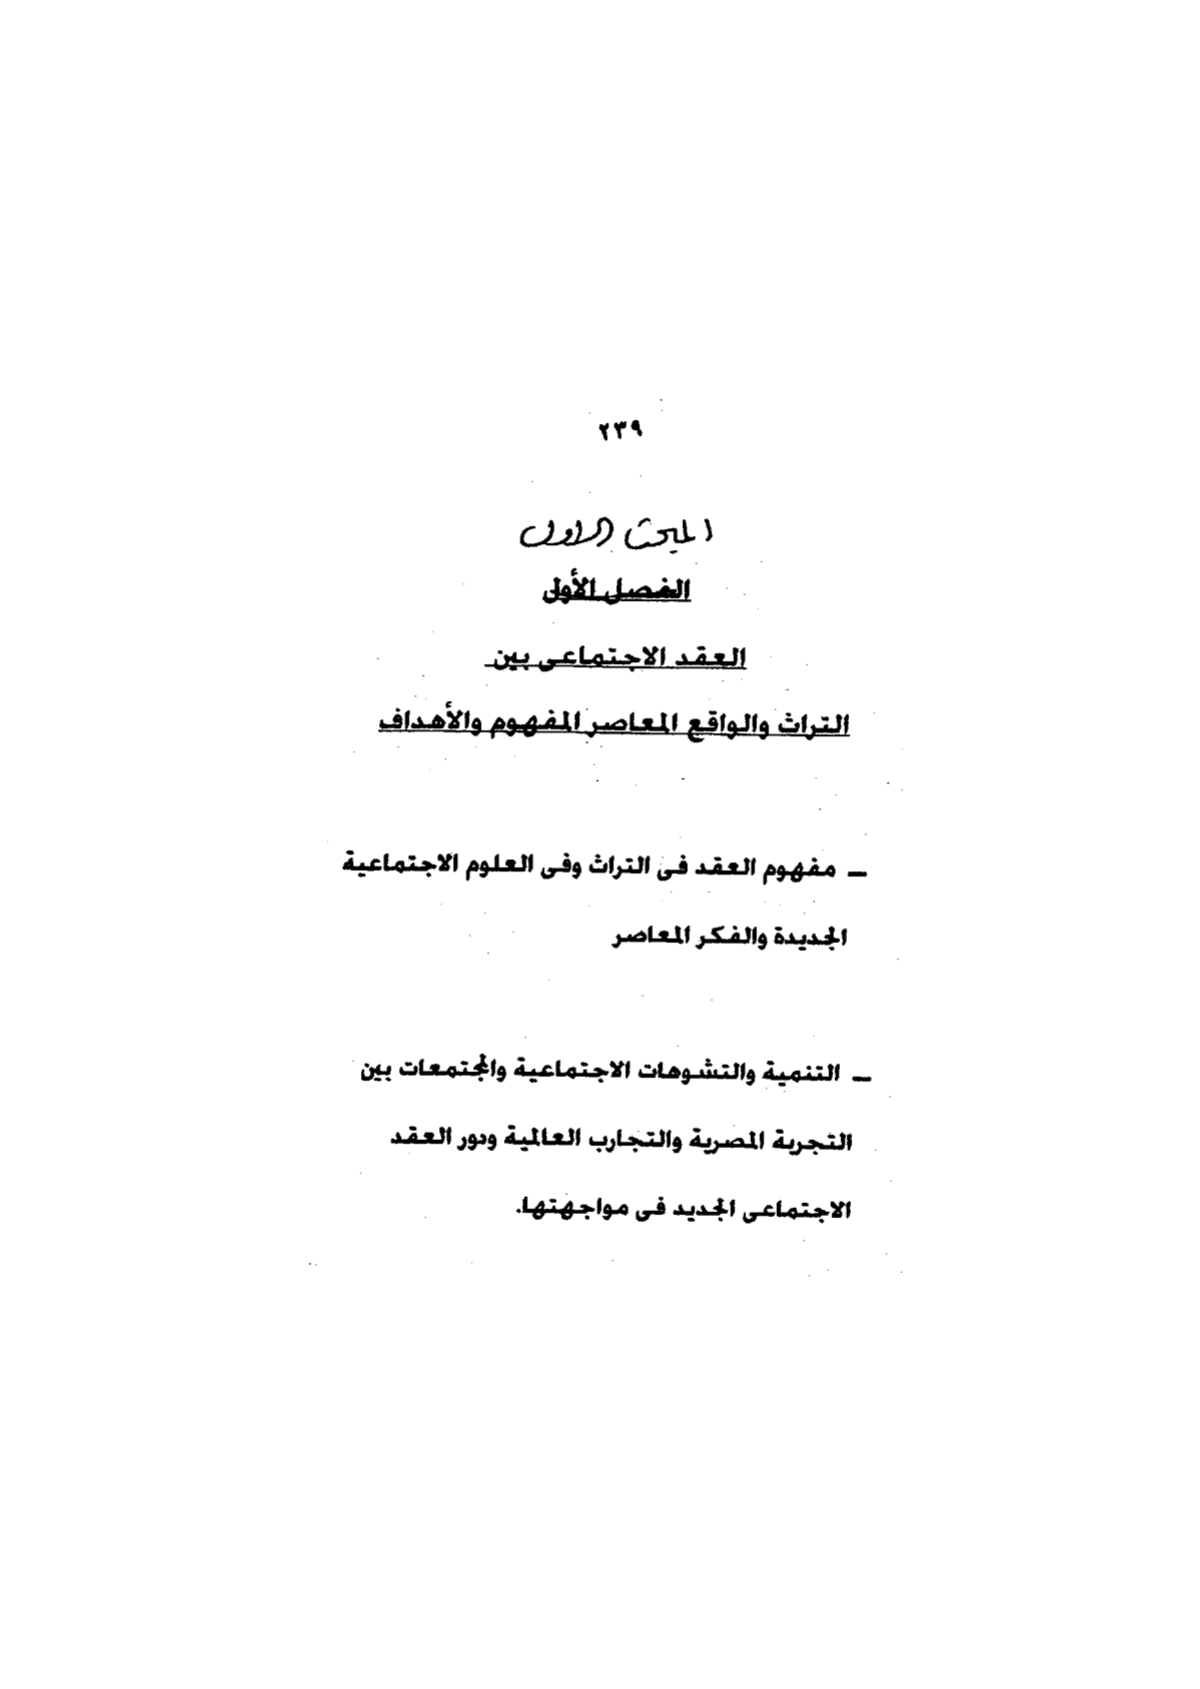 ٢٣٩
المبحث الاول
الفصل الأول
العقد الاجتماعى بين
التراث والواقع المعاصر المفهوم والأهداف
– مفهوم العقد فى التراث وفى العلوم الاجتماعية
الجديدة والفكر المعاصر
– التنمية والتشوهات الاجتماعية والمجتمعات بين
التجربة المصرية والتجارب العالمية ودور العقد
الاجتماعى الجديد فى مواجهتها.